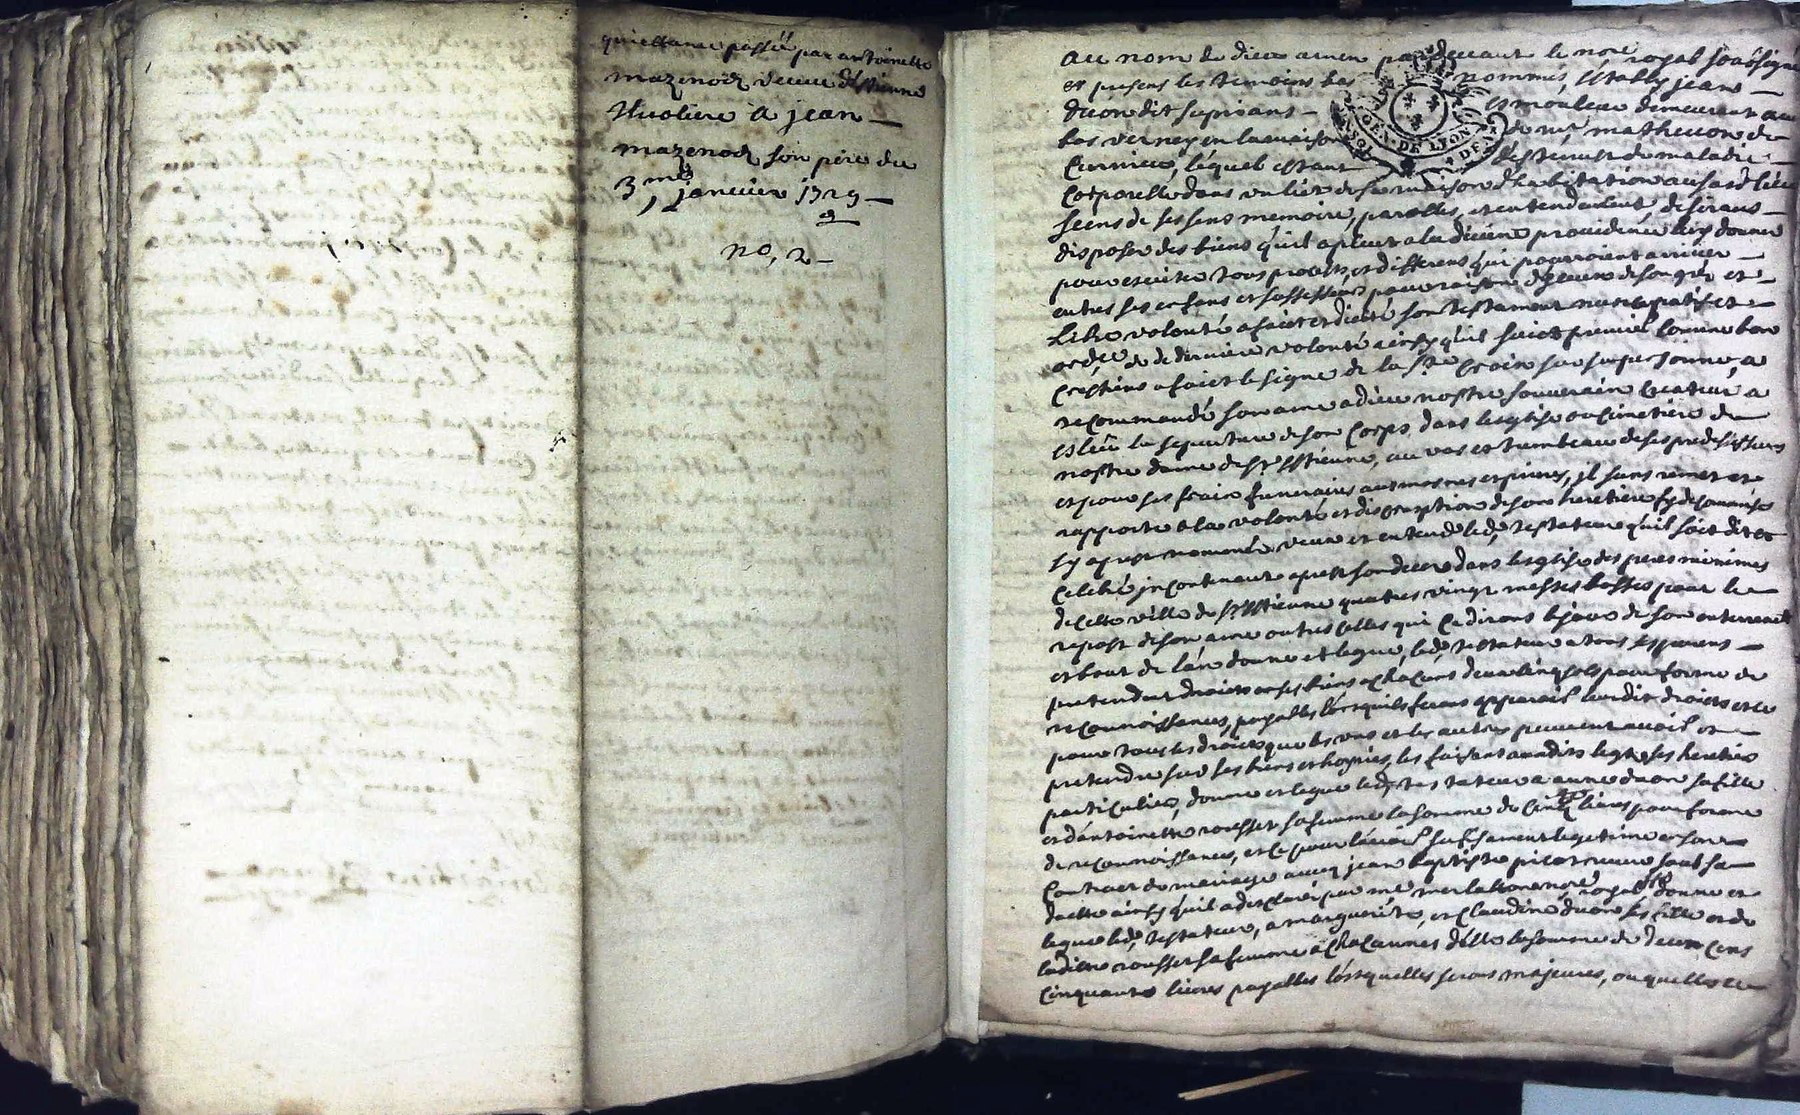 quiettance passée par antoinette
mazenod veuve d'estienne
thioliere a jean
mazenod son pere du
3me janvier 1729
no, 2
au nom de dieu amen par devant le nore royal soubsigné
et presens les temoins bas nommés, estably jean
duon dit
bas vernay en la maison de mr mathevon de
Curnieu, lequel estant detenu de maladie
Corporelle dans un lict de sa maison d'habitation
sens memoire, parolles, et entendement desirans
disposer des biens qu'il a pleu a la divine providence luy donner
pour esviter tous procets, et differens qui pourroient arriver
entre ses enfans et pour raison d'yceux de son gré et
Libre volonté a faict et dicté son testament nuncupatif et
de derniere volonté ainsy qu'il suict premier Comme bon
Crestiens a faict le signe de la ste Croix sur sa personne, a
recommandé son ame a dieu nostre souverain Createur, a
esleu la sepulture de son Corps dans lesglise ou Cimetiere de
nostre dame de st estienne, au vas et tumbeau de ses predesesseurs
et pour ses frais funeraires aumosnes et prieres, il s'en remet et
rapporte a la volonté et discreption de son heretiere
sy apres nommée veux et entend led, testateur qu'il soict dit et
Celebré incontinant apres son deces dans lesglise des peres minimes
de Cette ville de st estienne quatres vingt messes basses pour le
repost de son ame outres Celles qui Ce dirons le jour de son enterrement
et bout de l'an donne et legue, led, testateur a tous
pretendant droicts en ses biens a chacuns pour forme de
reconnoissances, payables lorsquils ferons apparoir leurdit droicts et ce
pour tous les droicts que les uns et les autres peuvent avoir et
pretendre sur ses biens et hoyries, les faisant audits legts ses heretiers
particuliers, donne et legue led, testateur a anne duon sa fille
et d'antoinette rousset sa femme la somme de Cinq livres pour forme
de reconnoissance, et Ce pour l'avoir legitime en son
Contract de mariage avec jean baptiste
datte ainsy qu'il a desclaré par me nore royal donne et
legue led, testateur, a marguerite, et Claudine duon ses filles et de
ladite rousset sa femme a chacunnes d'elle la somme de deux Cens
Cinquante livres payables lorsquelles serons majeures, ou quelles